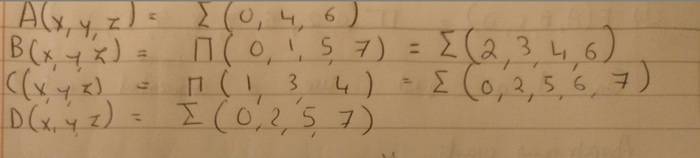 A(x,y,z) = Σ(0,4,6)
B(x,y,z) = Π(0,1,5,7) = Σ(2,3,4,6)
C(x,y,z) = Π(1,3,4) = Σ(0,2,5,6,7)
D(x,y,z) = Σ(0,2,5,7)